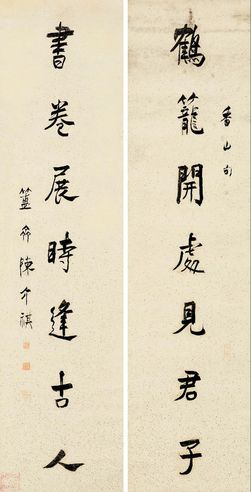 鶴籠開處見君子
香山句
書卷展時逢古人
簠齋陳介祺